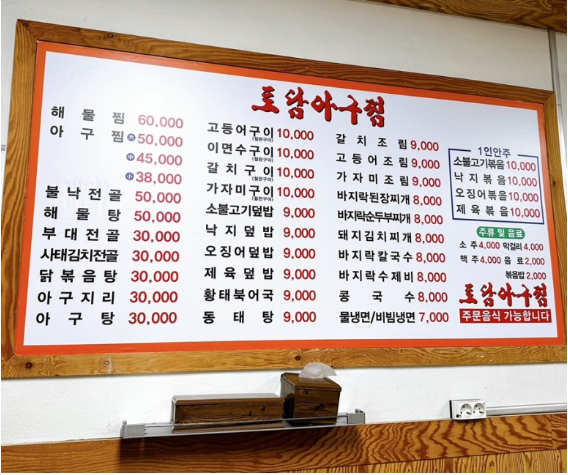 토담아구찜
해물찜 60,000
아구찜 大 50,000
中 45,000
小 38,000
불낙전골 50,000
해물탕 50,000
부대전골 30,000
사태김치전골 30,000
닭볶음탕 30,000
아구지리 30,000
아구탕 30,000
고등어구이 10,000
이면수구이 10,000
갈치구이 10,000
가자미구이 10,000
소불고기덮밥 9,000
낙지덮밥 9,000
오징어덮밥 9,000
제육덮밥 9,000
황태북어국 9,000
동태탕 9,000
갈치조림 9,000
고등어조림 9,000
가자미조림 9,000
바지락된장찌개 8,000
바지락순두부찌개 8,000
돼지김치찌개 8,000
바지락칼국수 8,000
바지락수제비 8,000
콩국수 8,000
물냉면/비빔냉면 7,000
1인안주
소불고기볶음 10,000
낙지볶음 10,000
오징어볶음 10,000
제육볶음 10,000
주류 및 음료
소주 4,000 막걸리 4,000
맥주 4,000 음료 2,000
볶음밥 2,000
토담아구찜
주문음식 가능합니다